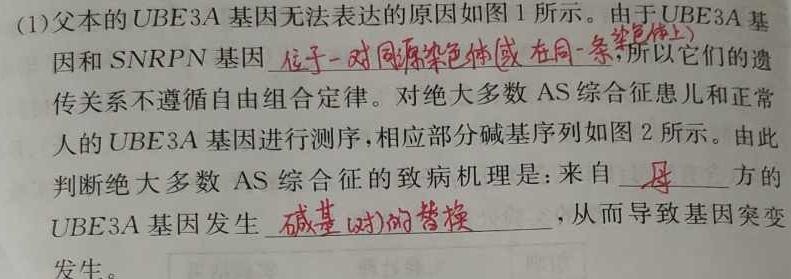 (1)父本的UBE3A基因无法表达的原因如图1所示。由于UBE3A基
因和SNRPN基因位于一对同源染色体(或在同一条染色体上),所以它们的遗
传关系不遵循自由组合定律。对绝大多数AS综合征患儿和正常
人的UBE3A基因进行测序,相应部分碱基序列如图2所示。由此
判断绝大多数AS综合征的致病机理是:来自母方的
UBE3A基因发生碱基(对)的替换,从而导致基因突变
发生。